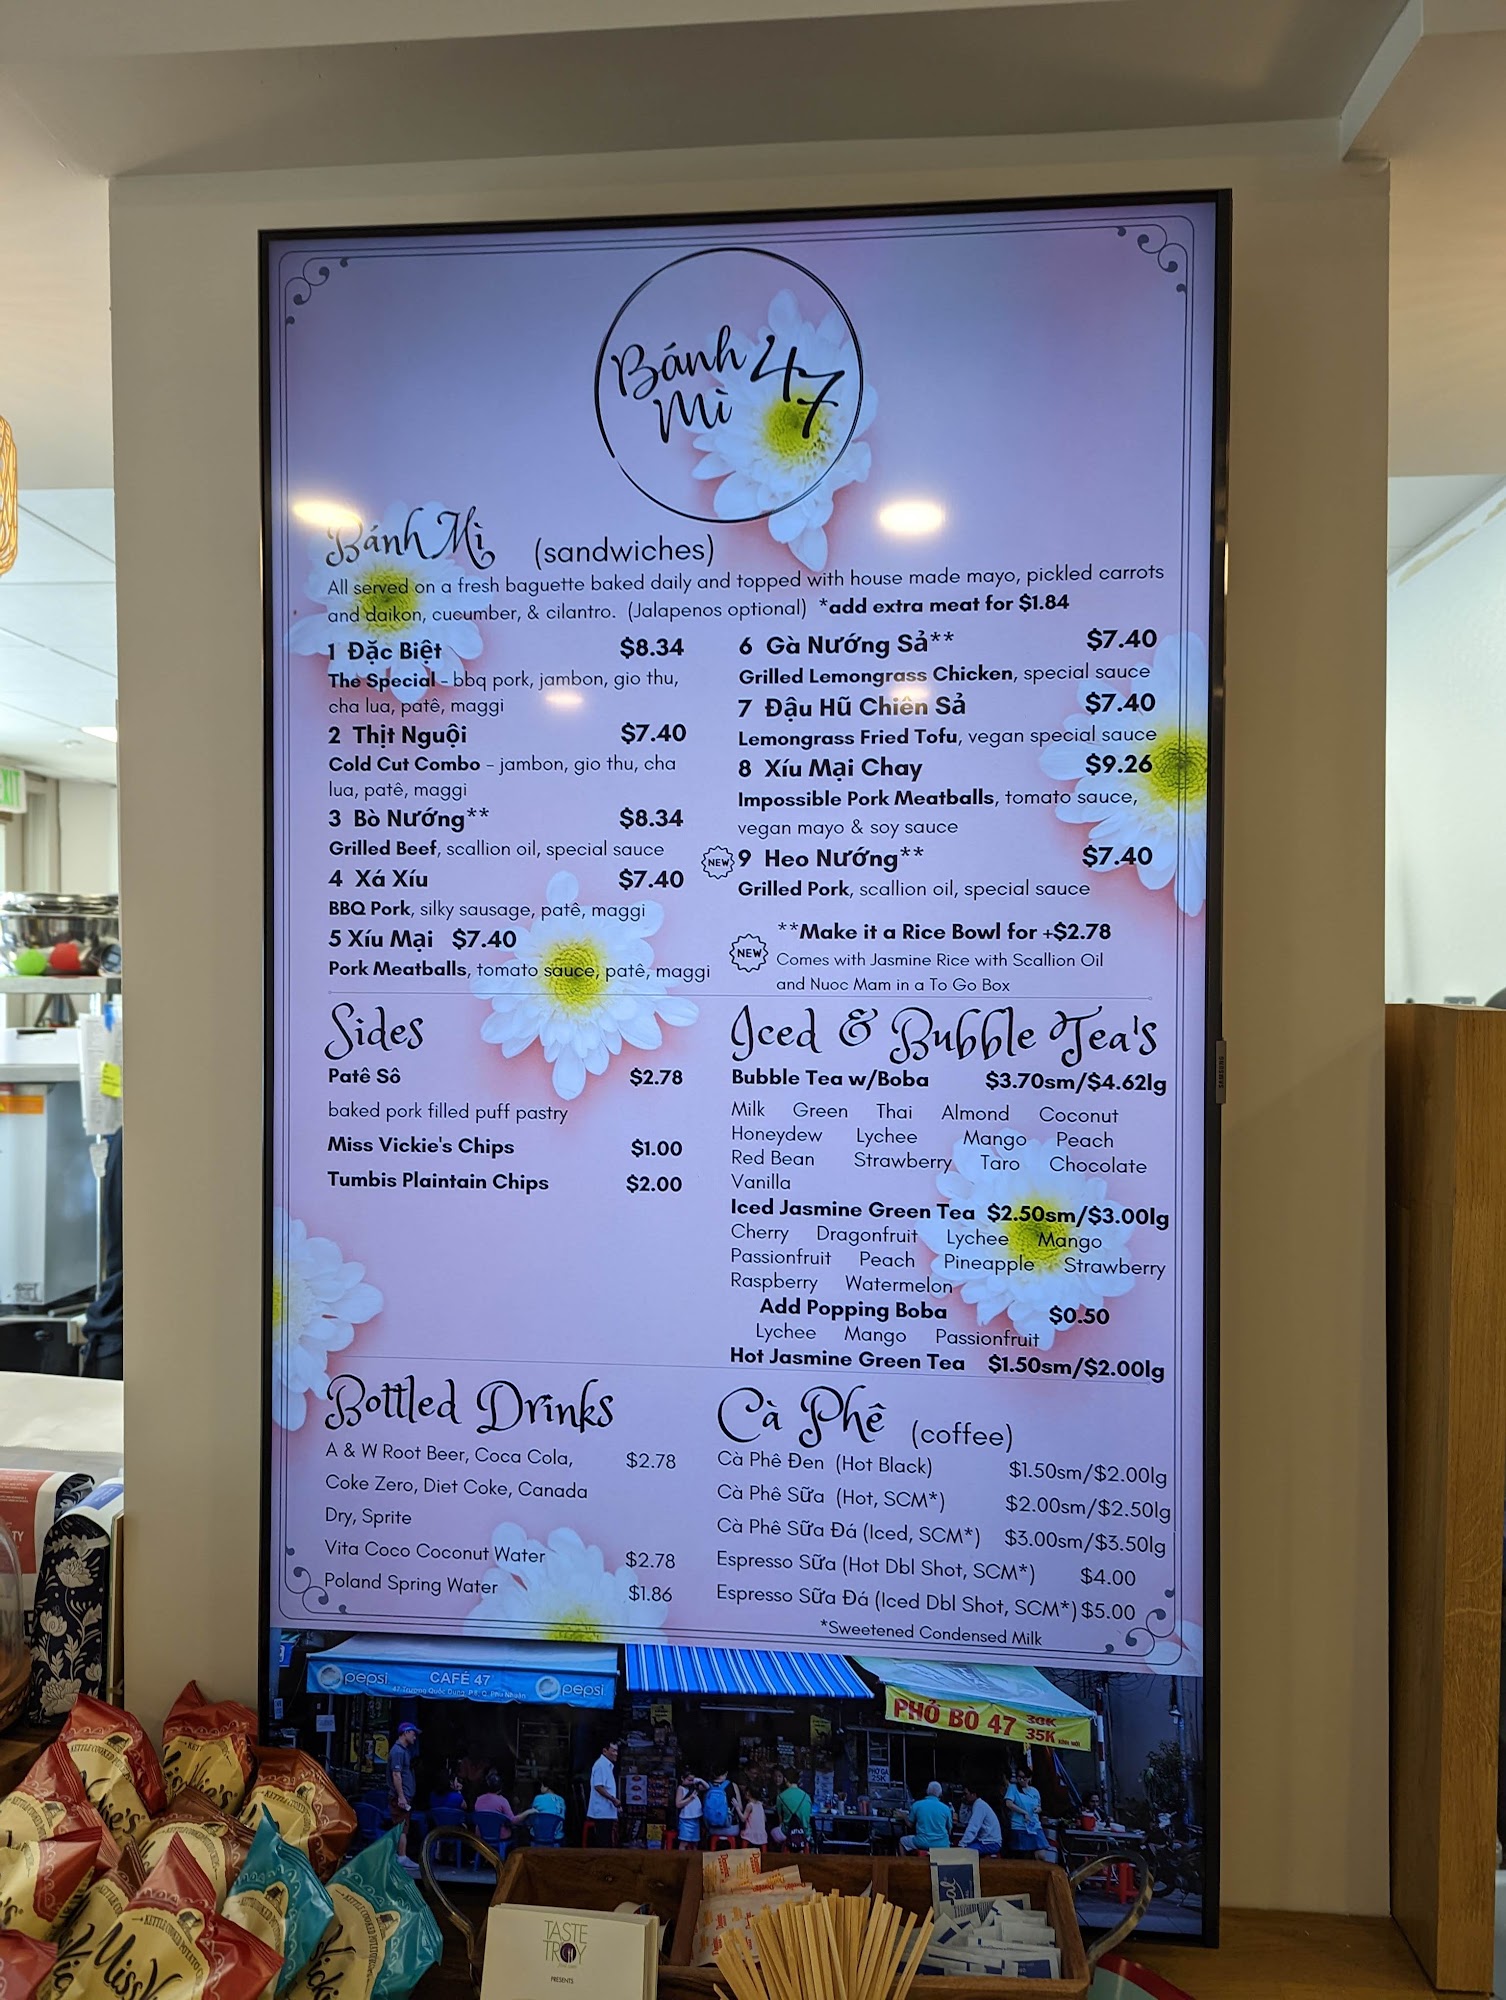 Bánh Mì 47
Bánh Mì (sandwiches)
All served on a fresh baguette baked daily and topped with house made mayo, pickled carrots
and daikon, cucumber, & cilantro. (Jalapenos optional) *add extra meat for $1.84
1 Đặc Biệt $8.34
The Special - bbq pork, jambon, gio thu,
cha lua, patê, maggi
2 Thịt Nguội $7.40
Cold Cut Combo - jambon, gio thu, cha
lua, patê, maggi
3 Bò Nướng** $8.34
Grilled Beef, scallion oil, special sauce
4 Xá Xíu $7.40
BBQ Pork, silky sausage, patê, maggi
5 Xíu Mại $7.40
Pork Meatballs, tomato sauce, patê, maggi
6 Gà Nướng Sả** $7.40
Grilled Lemongrass Chicken, special sauce
7 Đậu Hũ Chiên Sả $7.40
Lemongrass Fried Tofu, vegan special sauce
8 Xíu Mại Chay $9.26
Impossible Pork Meatballs, tomato sauce,
vegan mayo & soy sauce
NEW 9 Heo Nướng** $7.40
Grilled Pork, scallion oil, special sauce
**Make it a Rice Bowl for +$2.78
NEW Comes with Jasmine Rice with Scallion Oil
and Nuoc Mam in a To Go Box
Sides
Patê Sô $2.78
baked pork filled puff pastry
Miss Vickie's Chips $1.00
Tumbis Plaintain Chips $2.00
Iced & Bubble Tea's
Bubble Tea w/Boba $3.70sm/$4.62lg
Milk Green Thai Almond Coconut
Honeydew Lychee Mango Peach
Red Bean Strawberry Taro Chocolate
Vanilla
Iced Jasmine Green Tea $2.50sm/$3.00lg
Cherry Dragonfruit Lychee Mango
Passionfruit Peach Pineapple Strawberry
Raspberry Watermelon
Add Popping Boba $0.50
Lychee Mango Passionfruit
Hot Jasmine Green Tea $1.50sm/$2.00lg
Bottled Drinks
A & W Root Beer, Coca Cola, $2.78
Coke Zero, Diet Coke, Canada
Dry, Sprite
Vita Coco Coconut Water $2.78
Poland Spring Water $1.86
Cà Phê (coffee)
Cà Phê Đen (Hot Black) $1.50sm/$2.00lg
Cà Phê Sữa (Hot, SCM*) $2.00sm/$2.50lg
Cà Phê Sữa Đá (Iced, SCM*) $3.00sm/$3.50lg
Espresso Sữa (Hot Dbl Shot, SCM*) $4.00
Espresso Sữa Đá (Iced Dbl Shot, SCM*) $5.00
*Sweetened Condensed Milk
pepsi CAFÉ 47 pepsi
PHỞ BÒ 47 30K
35K
PHỞ GÀ
25K
SAMSUNG
EXIT
TASTE
TROY
PRESENTS